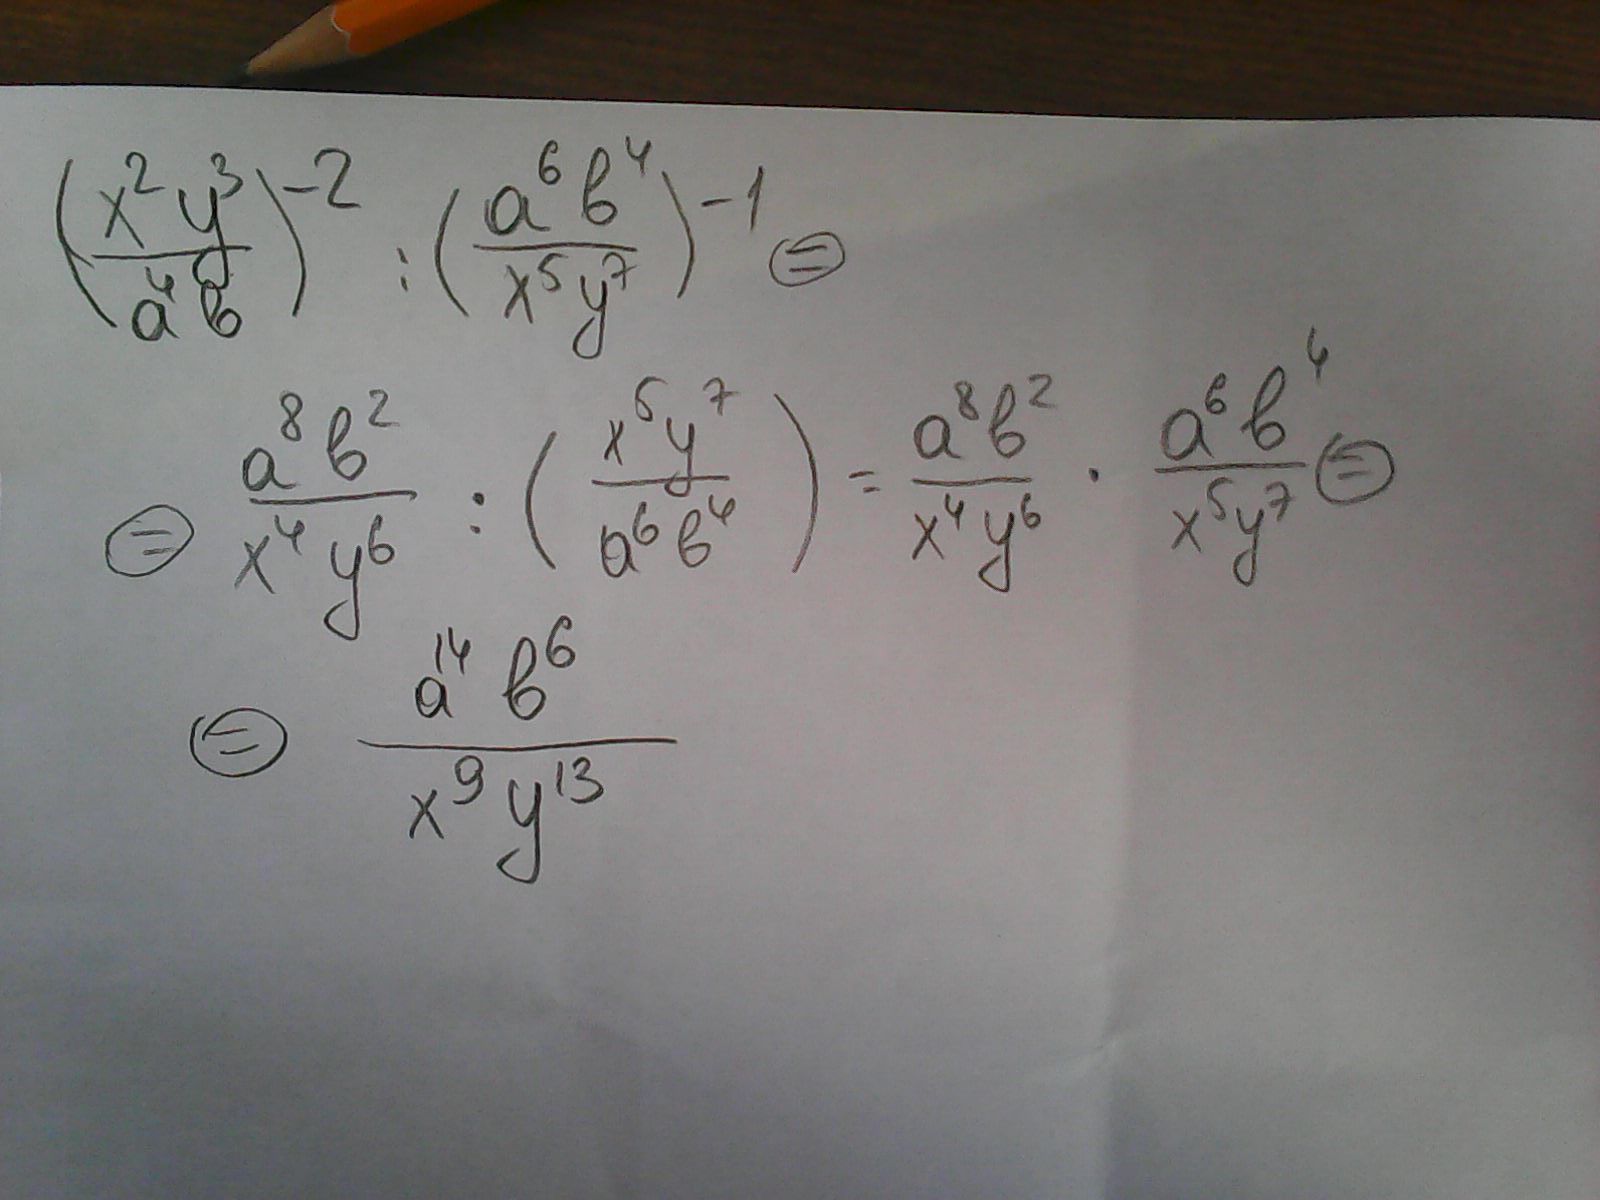 (x²y³/a⁴в)⁻² : (a⁶в⁴/x⁵y⁷)⁻¹ ⊜
⊜ a⁸в²/x⁴y⁶ : (x⁵y⁷/a⁶в⁴) = a⁸в²/x⁴y⁶ · a⁶в⁴/x⁵y⁷ ⊜
⊜ a¹⁴в⁶/x⁹y¹³